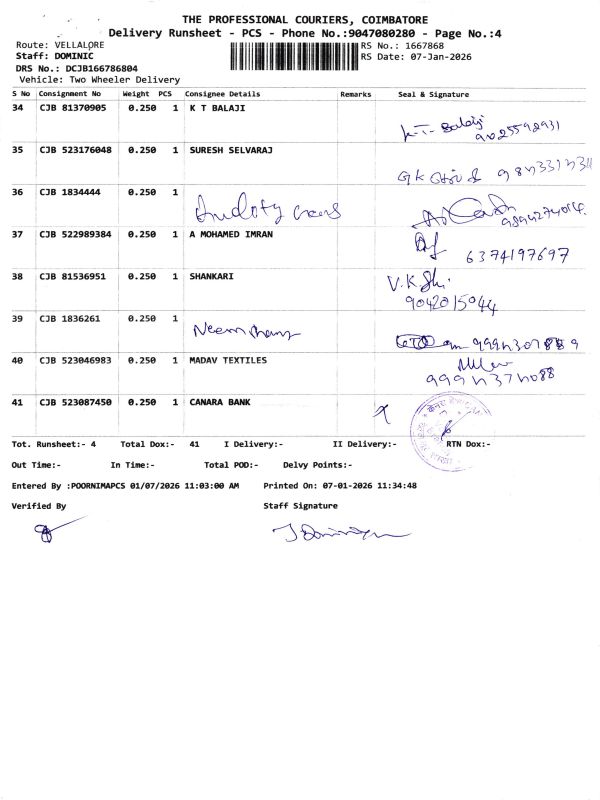 THE PROFESSIONAL COURIERS, COIMBATORE
Delivery Runsheet - PCS - Phone No.:9047080280 - Page No.:4
Route: VELLALORE
RS No.: 1667868
Staff: DOMINIC
RS Date: 07-Jan-2026
DRS No.: DCJB166786804
Vehicle: Two Wheeler Delivery
S No Consignment No Weight PCS Consignee Details Remarks Seal & Signature
34 CJB 81370905 0.250 1 K T BALAJI
K.T. Balaji
9025592931
35 CJB 523176048 0.250 1 SURESH SELVARAJ
36 CJB 1834444 0.250 1
37 CJB 522989384 0.250 1 A MOHAMED IMRAN
6374197697
38 CJB 81536951 0.250 1 SHANKARI
V.K.
9042015044
39 CJB 1836261 0.250 1
40 CJB 523046983 0.250 1 MADAV TEXTILES
41 CJB 523087450 0.250 1 CANARA BANK
Tot. Runsheet:- 4 Total Dox:- 41 I Delivery:- II Delivery:- RTN Dox:-
Out Time:- In Time:- Total POD:- Delvy Points:-
Entered By :POORNIMAPCS 01/07/2026 11:03:00 AM Printed On: 07-01-2026 11:34:48
Verified By Staff Signature